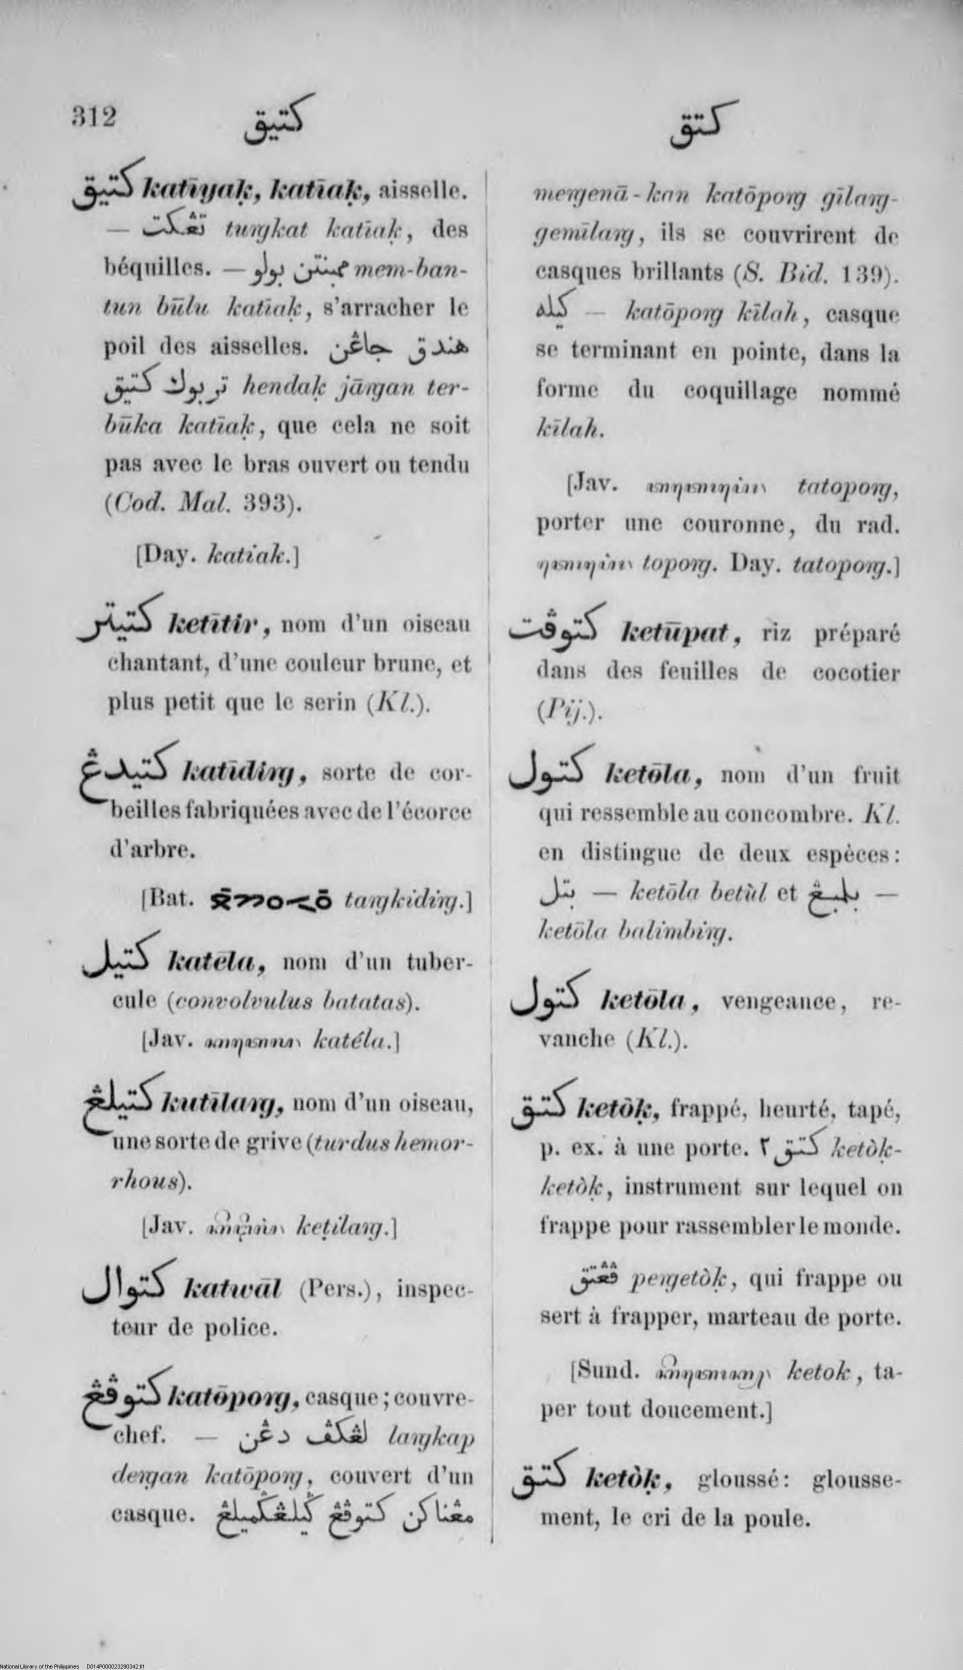 312
كتيق
كتق
كتيق katīyaḳ, katīaḳ, aisselle.
— تڠكت tuŋkat katīaḳ, des
béquilles. — ممبنتن بولو mem-ban-
tun būlu katīaḳ, s'arracher le
poil des aisselles. هندق جاڠن
تربوك كتيق hendaḳ jāŋan ter-
būka katīaḳ, que cela ne soit
pas avec le bras ouvert ou tendu
(Cod. Mal. 393).
[Day. katiak.]
كتيتر ketītir, nom d'un oiseau
chantant, d'une couleur brune, et
plus petit que le serin (Kl.).
كتيدڠ katīdiŋ, sorte de cor-
beilles fabriquées avec de l'écorce
d'arbre.
[Bat. taŋkidiŋ.]
كتيل katēla, nom d'un tuber-
cule (convolvulus batatas).
[Jav. katéla.]
كتيلڠ kutīlaŋ, nom d'un oiseau,
une sorte de grive (turdus hemor-
rhous).
[Jav. keṭilaŋ.]
كتوال katwāl (Pers.), inspec-
teur de police.
كتوڤڠ katōpoŋ, casque; couvre-
chef. — لڠكڤ دڠن laŋkap
deŋan katōpoŋ, couvert d'un
casque. مڠناكن كتوڤڠ ݢيلڠݢميلڠ
meŋenā-kan katōpoŋ gīlaŋ-
gemīlaŋ, ils se couvrirent de
casques brillants (S. Bid. 139).
كيله — katōpoŋ kīlah, casque
se terminant en pointe, dans la
forme du coquillage nommé
kīlah.
[Jav. tatopoŋ,
porter une couronne, du rad.
topoŋ. Day. tatopoŋ.]
كتوڤت ketūpat, riz préparé
dans des feuilles de cocotier
(Pij.).
كتول ketōla, nom d'un fruit
qui ressemble au concombre. Kl.
en distingue de deux espèces:
بتل — ketōla betùl et بلمبڠ —
ketōla balimbiŋ.
كتول ketōla, vengeance, re-
vanche (Kl.).
كتق ketòḳ, frappé, heurté, tapé,
p. ex. à une porte. كتق٢ ketòḳ-
ketòḳ, instrument sur lequel on
frappe pour rassembler le monde.
ڤڠتق peŋetòḳ, qui frappe ou
sert à frapper, marteau de porte.
[Sund. ketok, ta-
per tout doucement.]
كتق ketòḳ, gloussé: glousse-
ment, le cri de la poule.
National Library of the Philippines